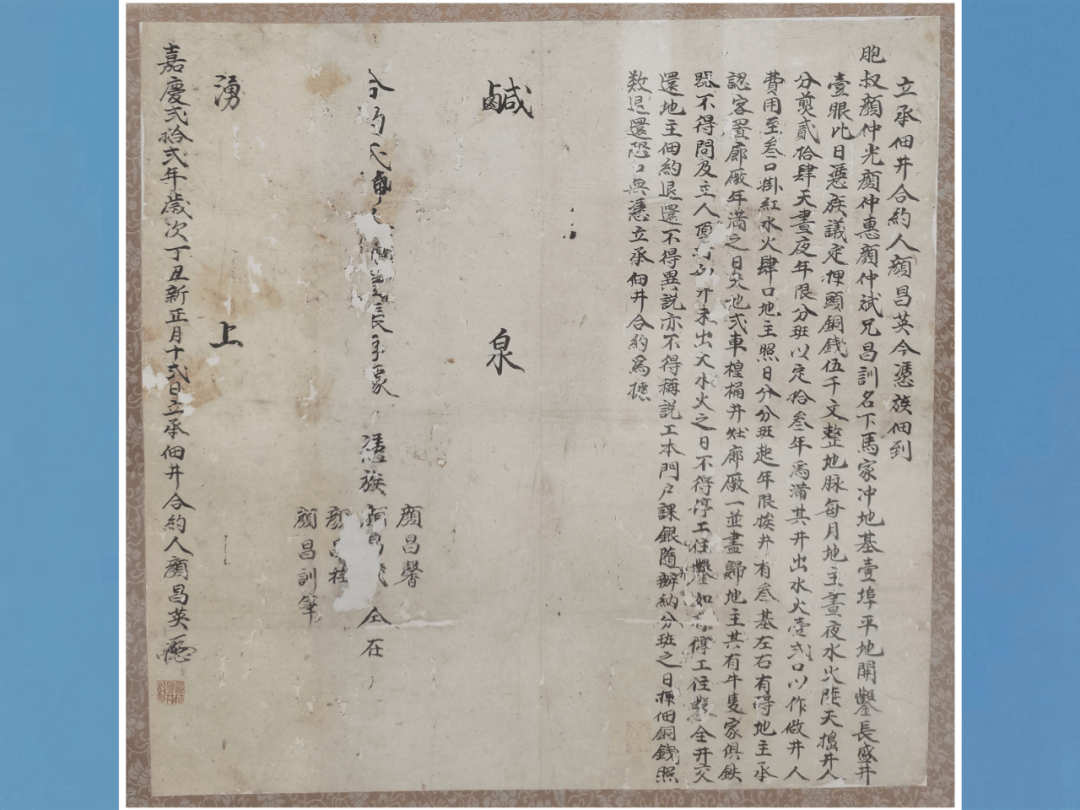 立承佃井合約人顏昌英今憑族佃到
胞叔顏仲光顏仲惠顏仲斌兄昌訓名下馬家冲地基壹埠平地開鑿長盛井
壹眼比日憑族議定押頭銅錢伍千文整地脉每月地主晝夜水火陸天搗井人
分煎貳拾肆天晝夜年限分班以定拾叁年為滿其井出水火壹弍口以作做井人
費用至叁口掛紅水火肆口地主照日分分班起年限挨井有叁基左右有碍地主承
認客置廊厰年滿之日天地弍車楻桶井灶廊厰一並盡歸地主其有牛隻家俱鉄
器不得問及主人井未出大水火之日不得停工住鑿如停工住鑿全井交
還地主佃約退還不得異說亦不得稱說工本門戶課銀随辦納分班之日押佃銅錢照
数退還恐口無憑立承佃井合約為據
鹹泉
憑族
顏昌馨
昌 仝在
顏昌桂
顏昌訓筆
湧上
嘉慶弍拾弍年歲次丁丑新正月十弍日立承佃井合約人顏昌英